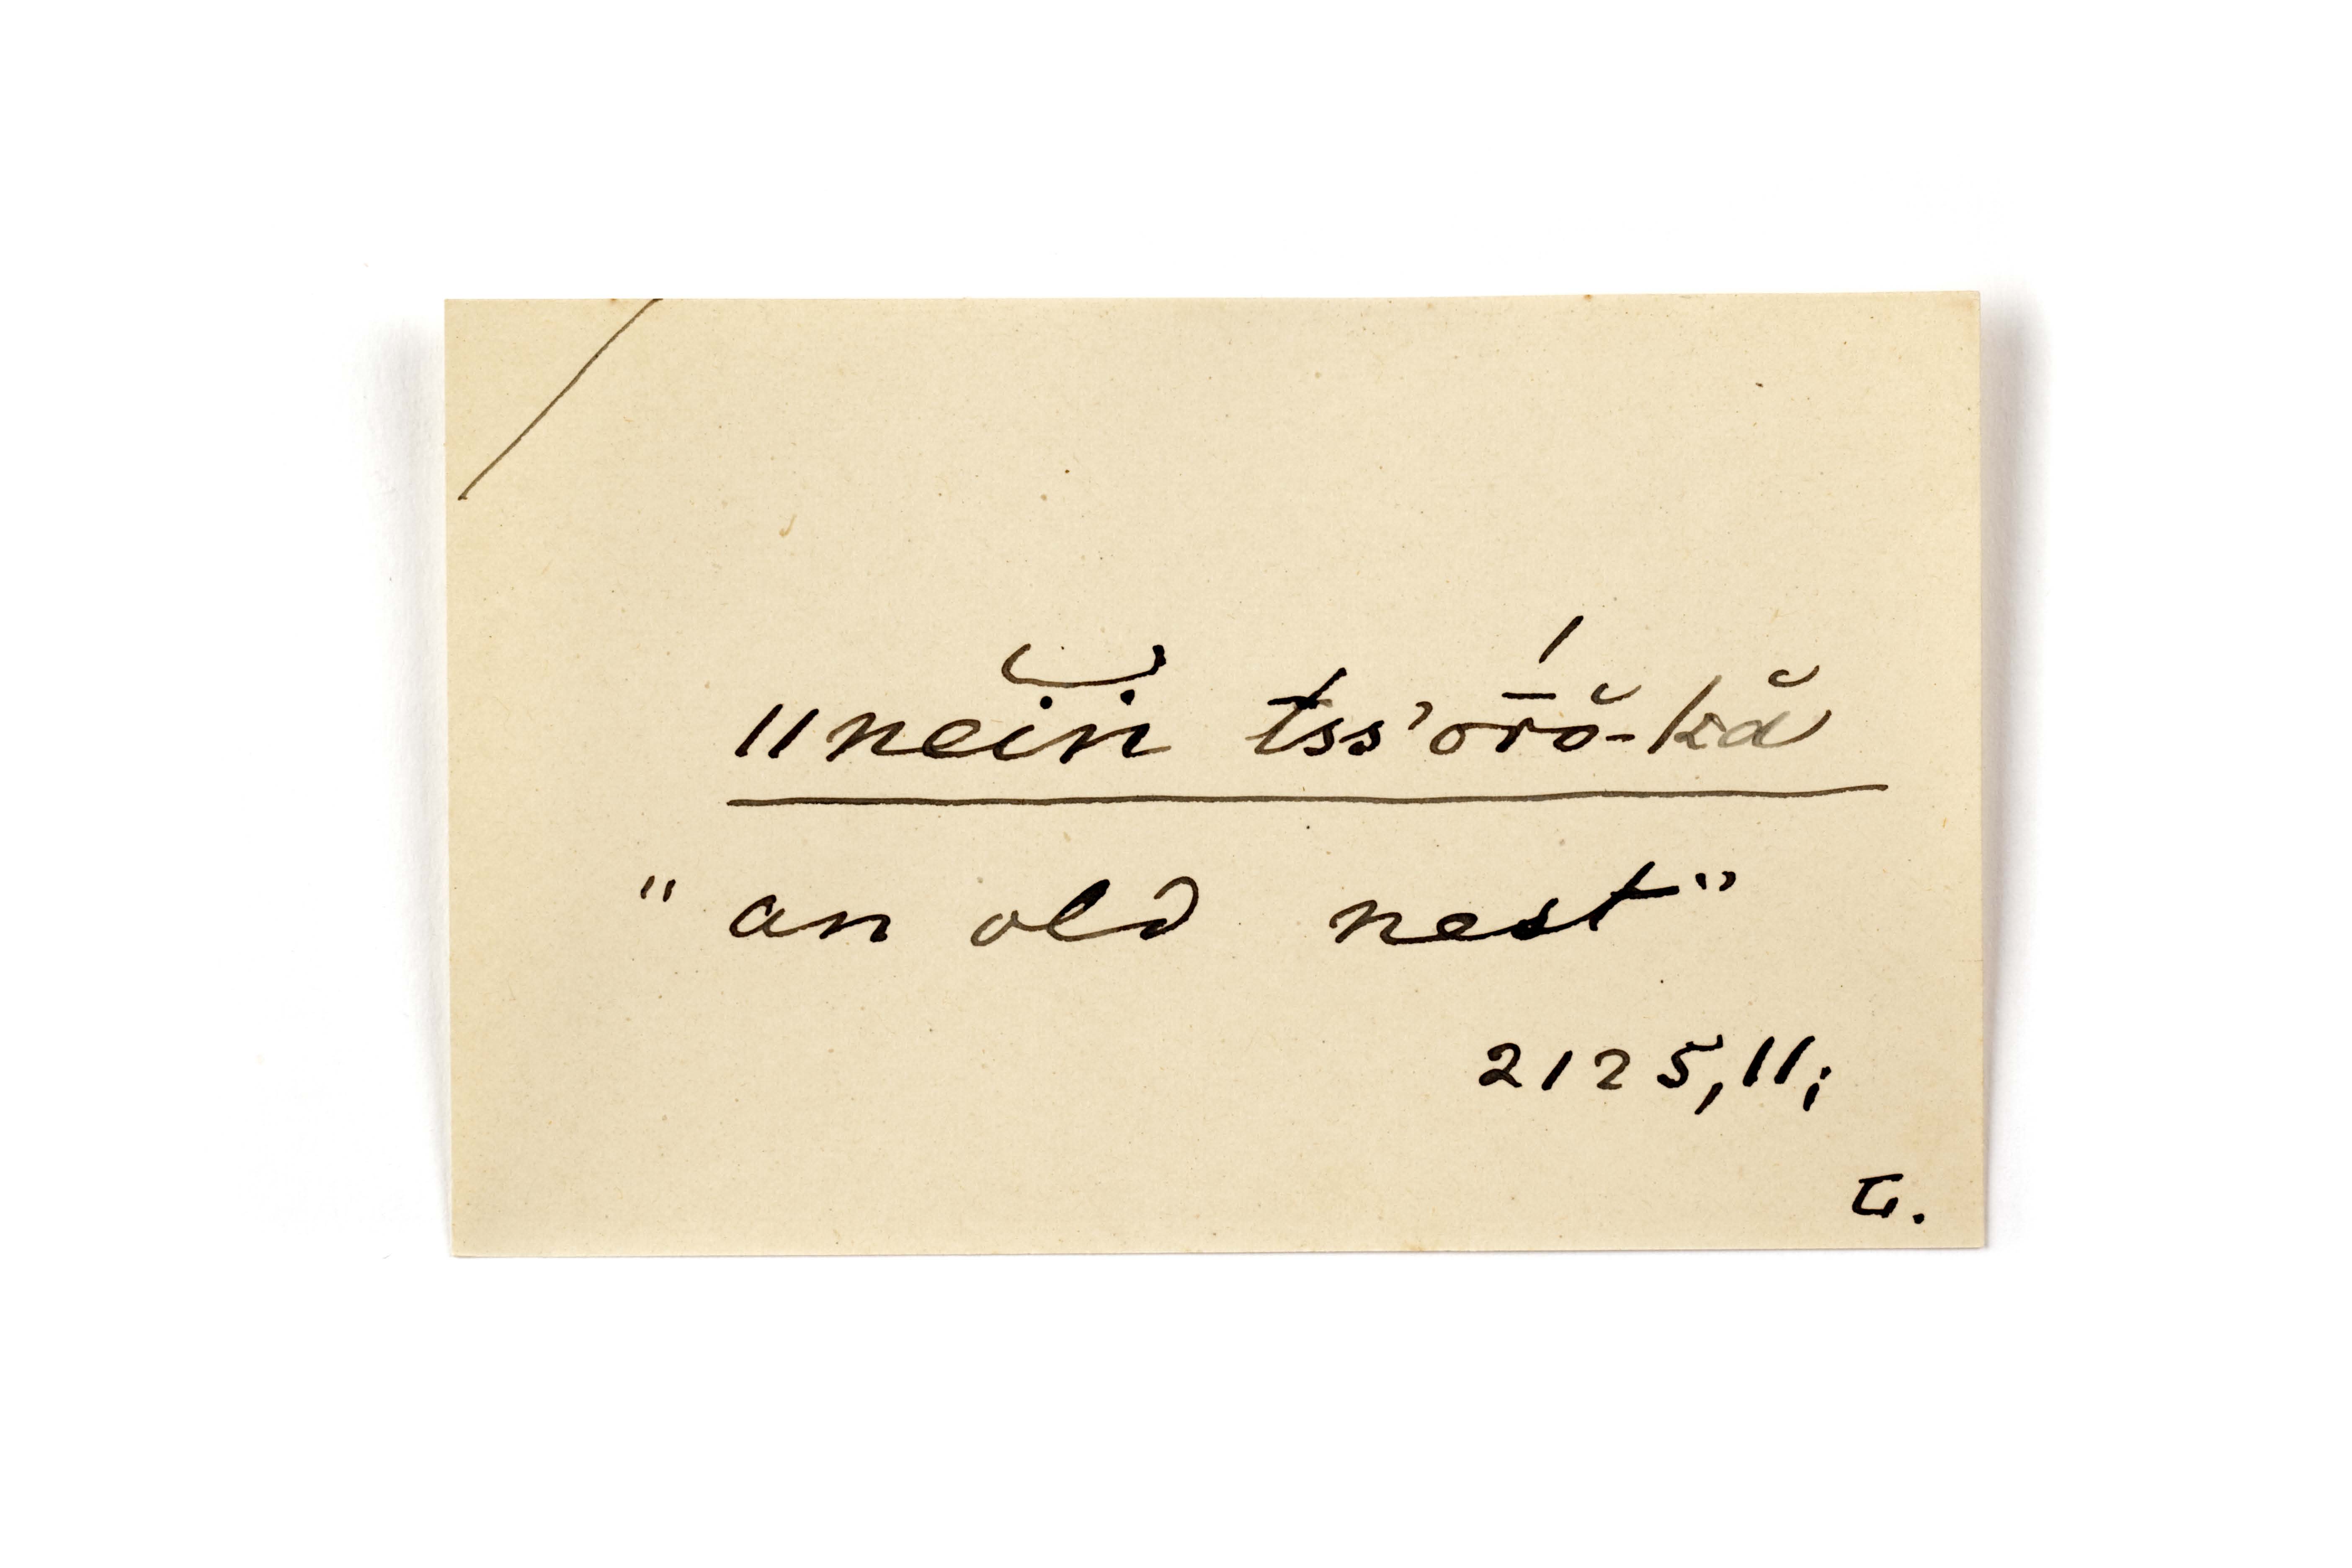 ‖nein̆ tss'ōŕŏ-kă
"an old nest"
2125,11;